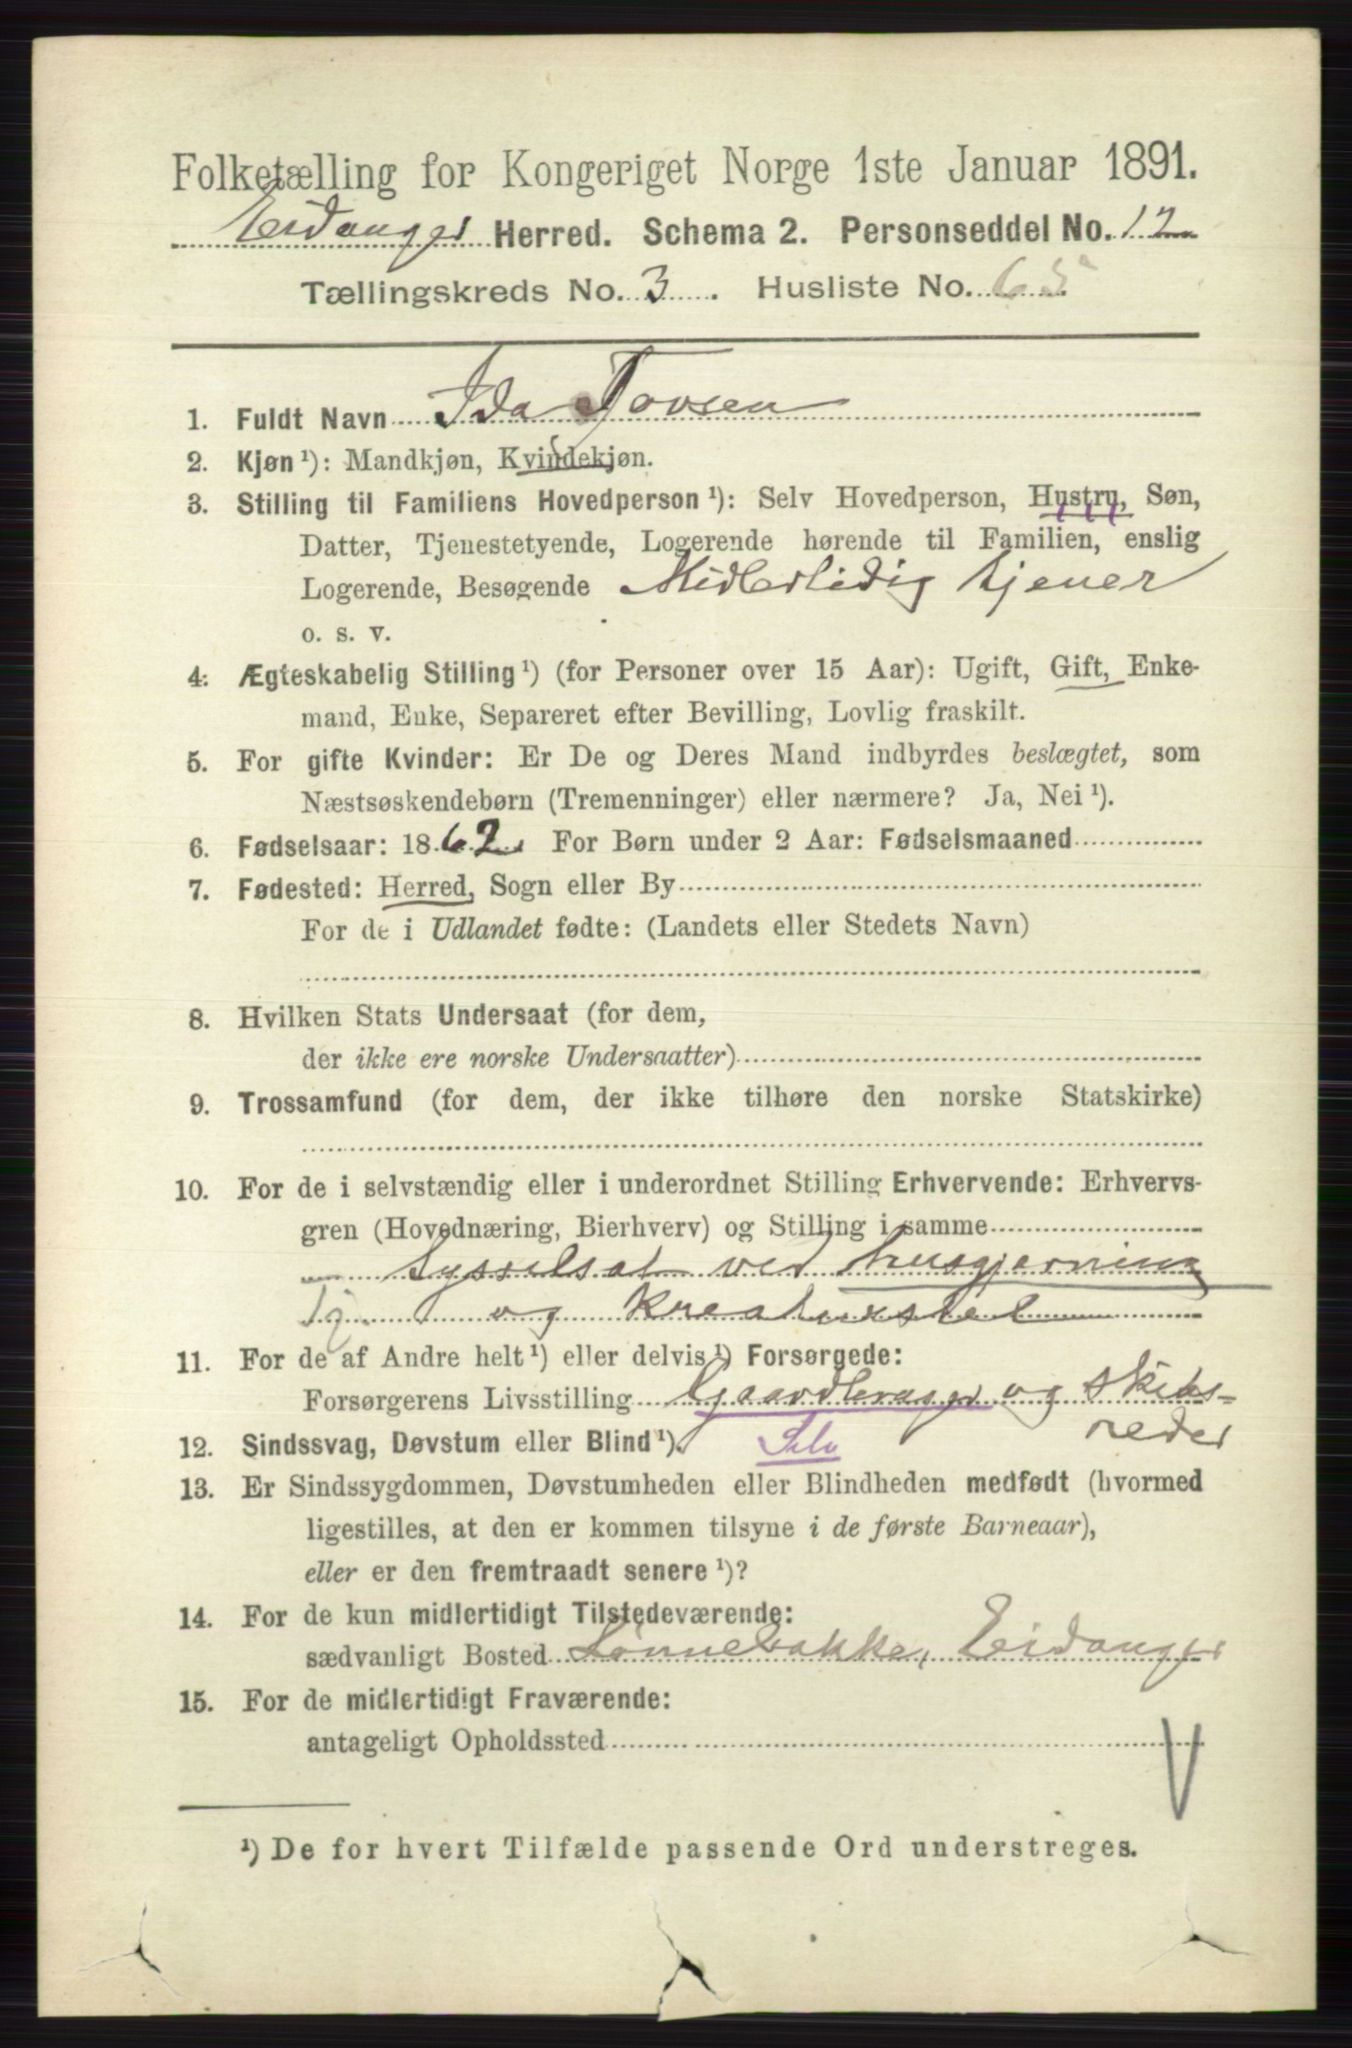 Folketælling for Kongeriget Norge 1ste Januar 1891.
Eidanger Herred. Schema 2. Personseddel No. 12
Tællingskreds No. 3. Husliste No. 65.
1. Fuldt Navn Ida Tovsen
2. Kjøn ¹): Mandkjøn, Kvindekjøn.
3. Stilling til Familiens Hovedperson ¹): Selv Hovedperson, Hustru, Søn,
Datter, Tjenestetyende, Logerende hørende til Familien, enslig
Logerende, Besøgende Midlertidig tjener
o. s. v.
4. Ægteskabelig Stilling ¹) (for Personer over 15 Aar): Ugift, Gift, Enke-
mand, Enke, Separeret efter Bevilling, Lovlig fraskilt.
5. For gifte Kvinder: Er De og Deres Mand indbyrdes beslægtet, som
Næstsøskendebørn (Tremenninger) eller nærmere? Ja, Nei ¹).
6. Fødselsaar: 1862. For Børn under 2 Aar: Fødselsmaaned
7. Fødested: Herred, Sogn eller By
For de i Udlandet fødte: (Landets eller Stedets Navn)
8. Hvilken Stats Undersaat (for dem,
der ikke ere norske Undersaatter)
9. Trossamfund (for dem, der ikke tilhøre den norske Statskirke)
10. For de i selvstændig eller i underordnet Stilling Erhvervende: Erhvervs-
gren (Hovednæring, Bierhverv) og Stilling i samme
Sysselsat ved husgjerning
Tj. og Kreaturstel
11. For de af Andre helt ¹) eller delvis ¹) Forsørgede:
Forsørgerens Livsstilling Gaardbruger og Skibs-
reder
12. Sindssvag, Døvstum eller Blind ¹). Selv
13. Er Sindssygdommen, Døvstumheden eller Blindheden medfødt (hvormed
ligestilles, at den er kommen tilsyne i de første Barneaar),
eller er den fremtraadt senere ¹)?
14. For de kun midlertidigt Tilstedeværende:
sædvanligt Bosted Lønnebakke, Eidanger
15. For de midlertidigt Fraværende:
antageligt Opholdssted
¹) De for hvert Tilfælde passende Ord understreges.